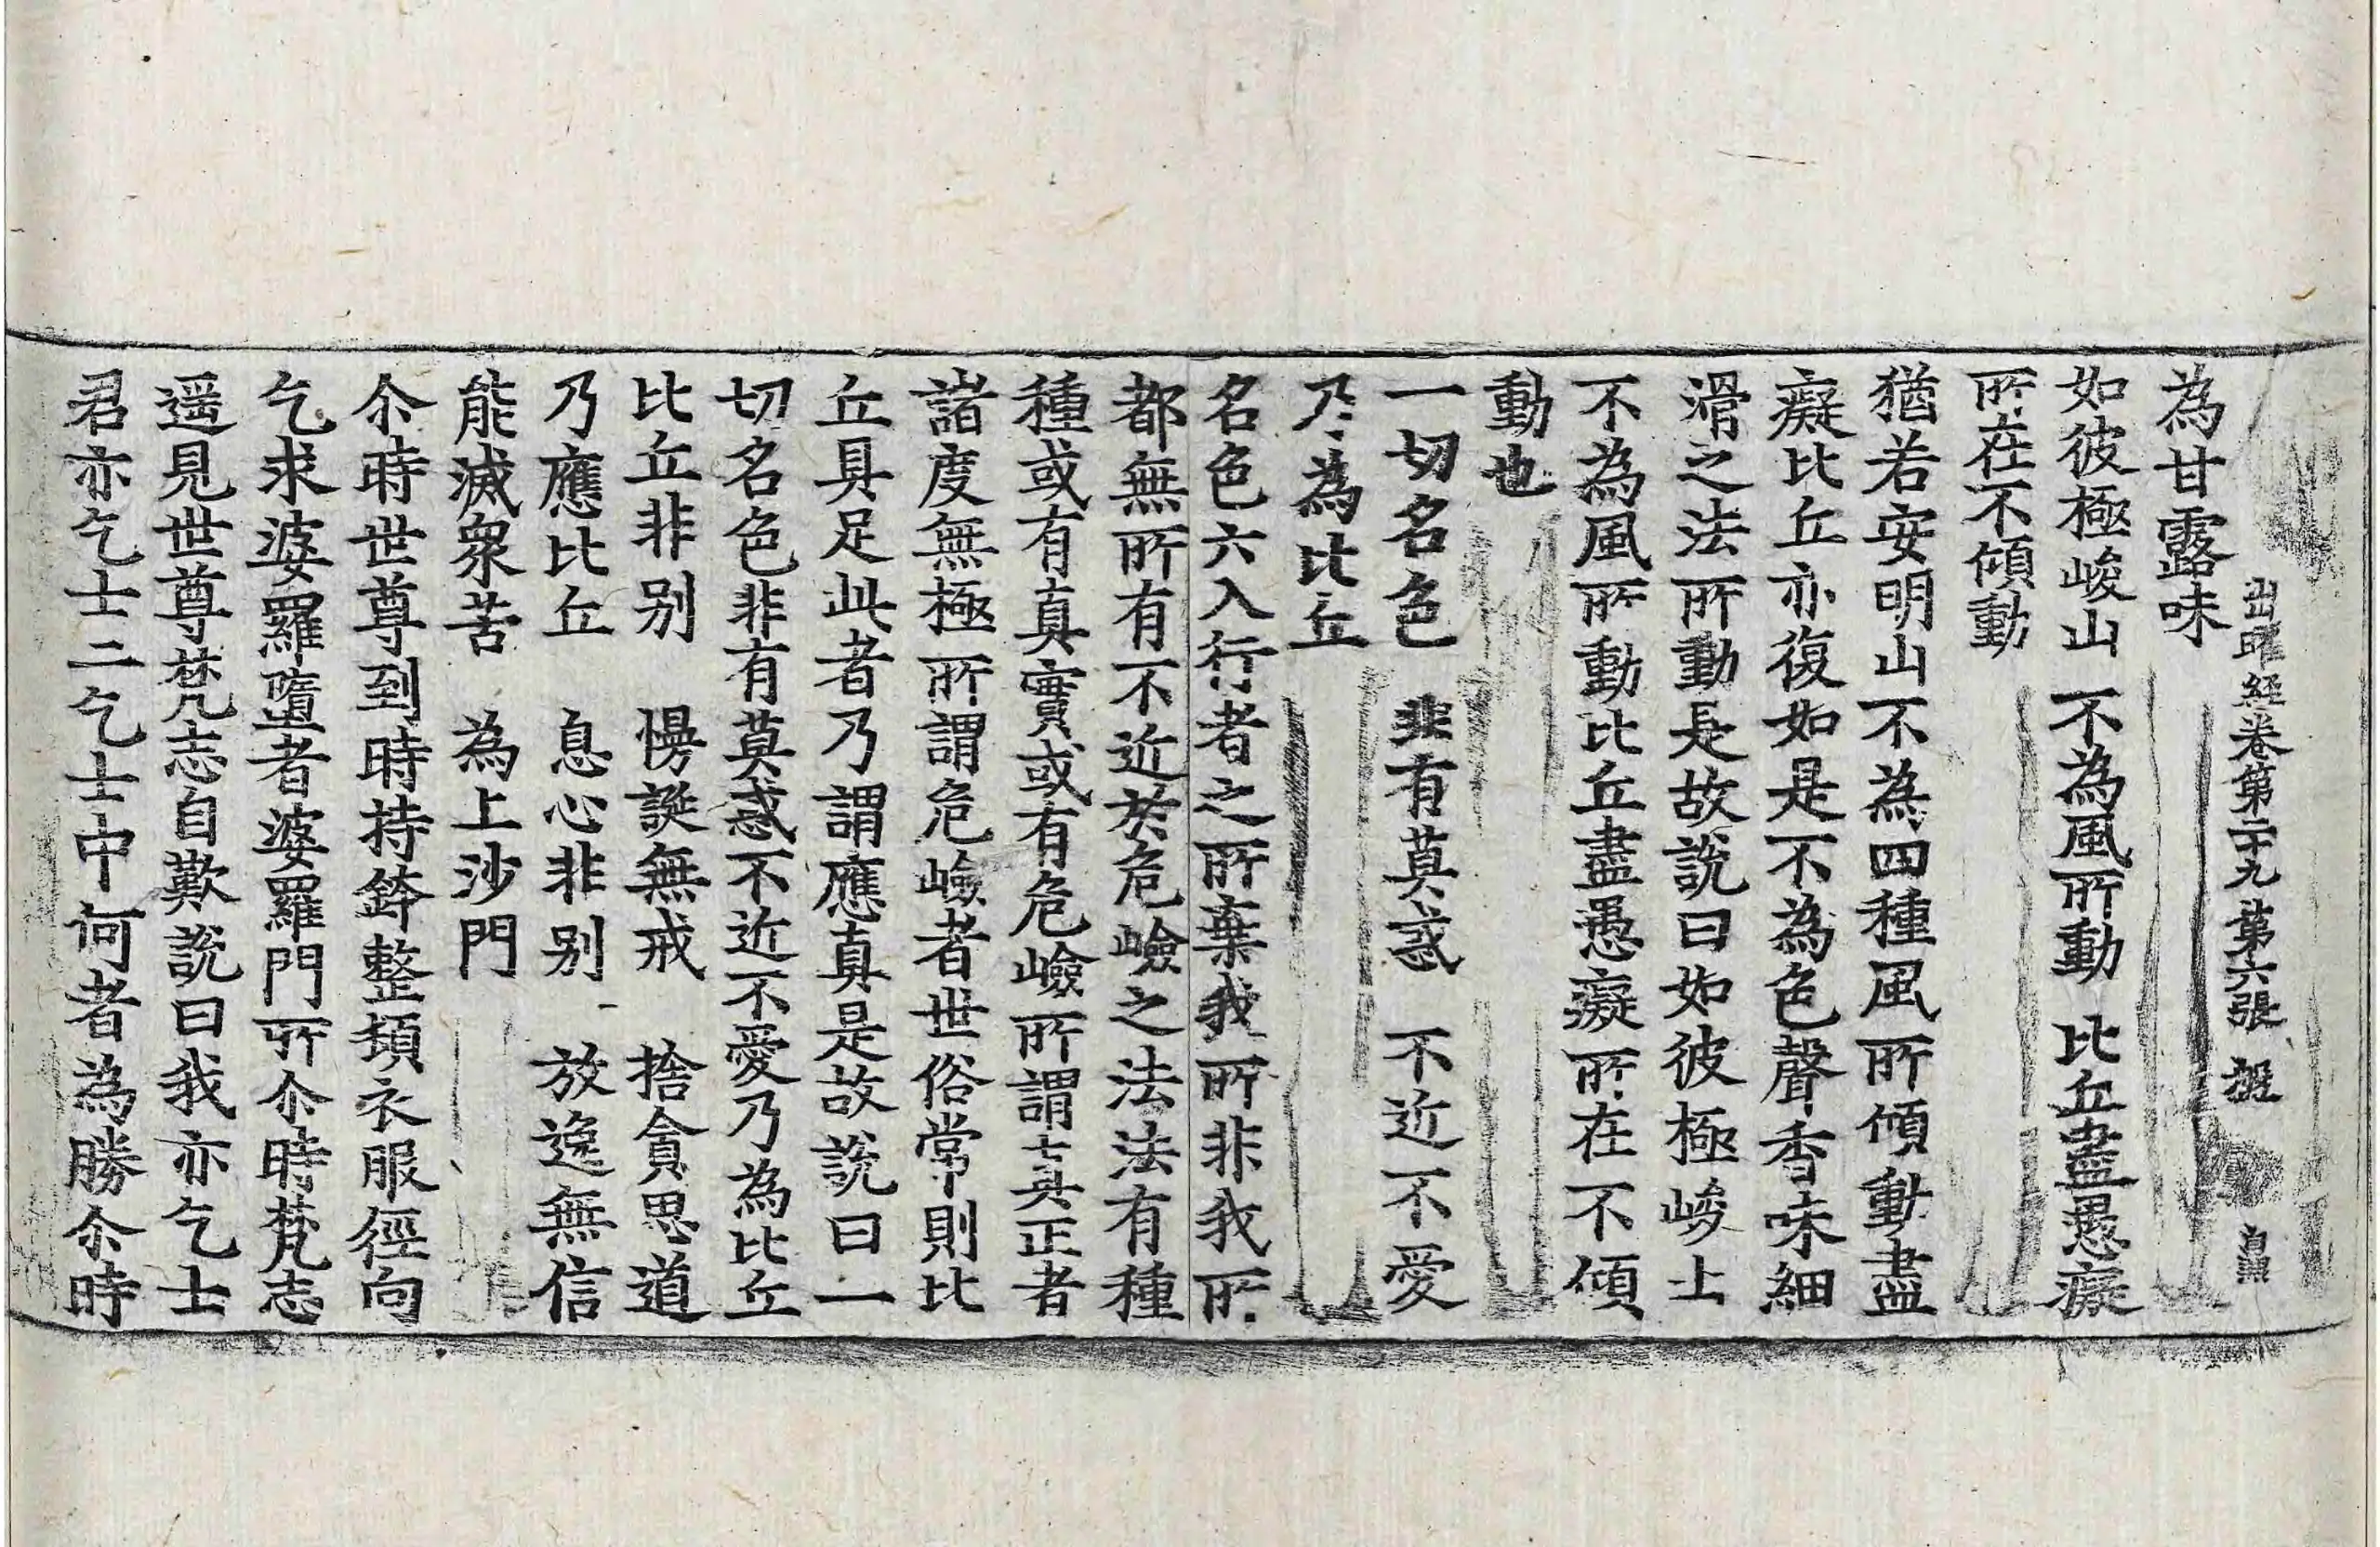 出曜經卷第二十九 第六張
為甘露味
如彼極峻山 不為風所動 比丘盡愚癡
所在不傾動
猶若安明山不為四種風所傾動盡
癡比丘亦復如是不為色聲香味細
滑之法所動是故說曰如彼極峻山
不為風所動比丘盡愚癡所在不傾
動也
一切名色 非有莫惑 不近不愛
乃為比丘
名色六入行者之所棄我所非我所
都無所有不近於危嶮之法法有種
種或有真實或有危嶮所謂真正者
諸度無極所謂危嶮者世俗常則比
丘具足此者乃謂應真是故說曰一
切名色非有莫惑不近不愛乃為比丘
比丘非别 慢誕無戒 捨貪思道
乃應比丘 息心非别 放逸無信
能滅衆苦 為上沙門
尒時世尊到時持鉢整頓衣服徑向
乞求婆羅墮者婆羅門所尒時梵志
遥見世尊梵志自歎說曰我亦乞士
君亦乞士二乞士中何者為勝尒時